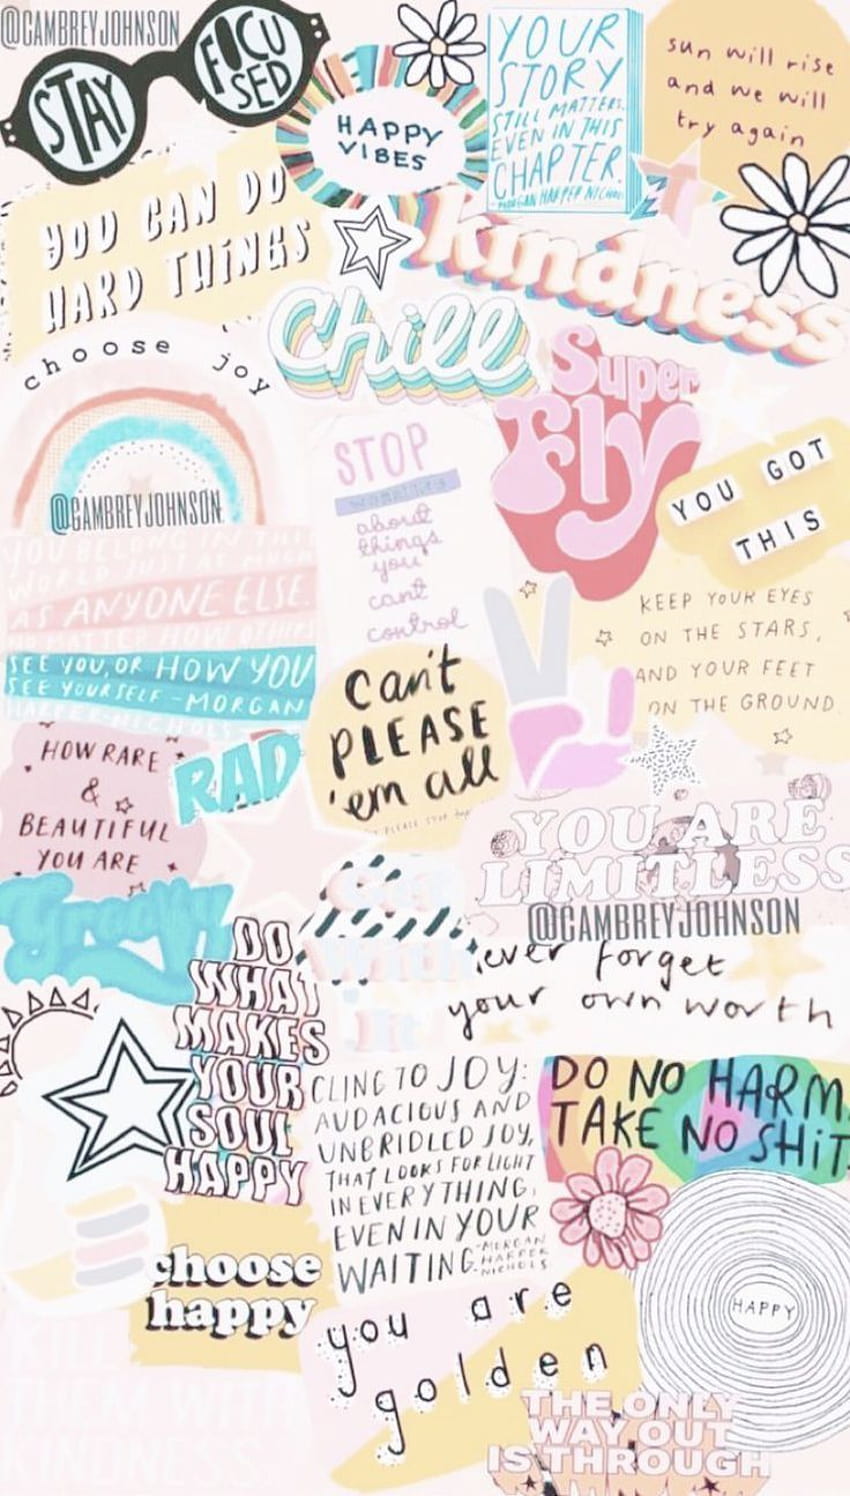 @CAMBREYJOHNSON
STAY
FOCU
SED
HAPPY
VIBES
YOUR
STORY
STILL MATTERS.
EVEN IN THIS
CHAPTER.
-MORGAN HARPER NICHOLS
sun will rise
and we will
try again
YOU CAN DO
HARD THINGS
kindness
Chill
choose joy
Super
Fly
STOP
about
things
you
can't
control
YOU GOT
THIS
@CAMBREYJOHNSON
YOU BELONG IN THIS
WORLD JUST AS MUCH
AS ANYONE ELSE.
NO MATTER HOW OTHERS
SEE YOU, OR HOW YOU
SEE YOURSELF -MORGAN
HARPER NICHOLS
KEEP YOUR EYES
ON THE STARS,
AND YOUR FEET
ON THE GROUND
can't
PLEASE
'em all
HOW RARE
&
BEAUTIFUL
YOU ARE
RAD
YOU ARE
LIMITLESS
@CAMBREYJOHNSON
Groovy
Get
With
it
DO
WHAT
MAKES
YOUR
SOUL
HAPPY
never forget
your own worth
CLING TO JOY:
AUDACIOUS AND
UNBRIDLED JOY,
THAT LOOKS FOR LIGHT
IN EVERYTHING,
EVEN IN YOUR
WAITING -MORGAN
HARPER
NICHOLS
DO NO HARM
TAKE NO SHIT
choose
happy
HAPPY
you are
golden
KILL
THEM WITH
KINDNESS
THE ONLY
WAY OUT
IS THROUGH